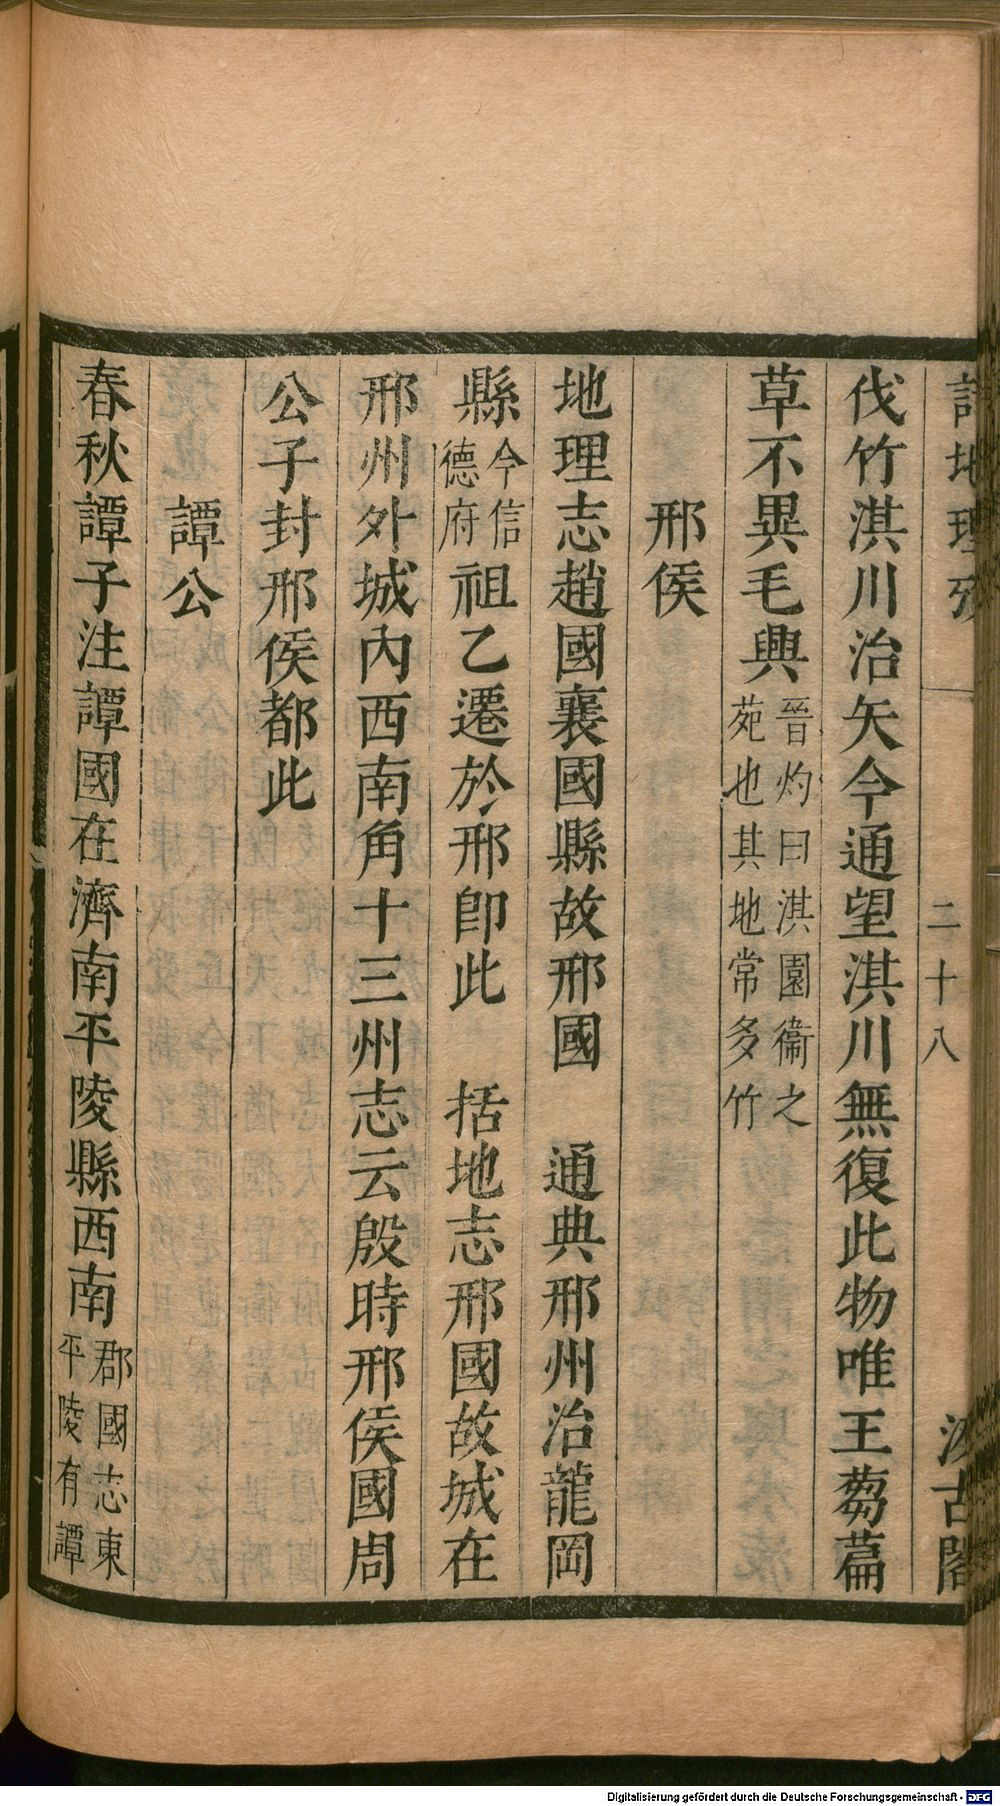 詩地理攷 二十八 汲古閣
伐竹淇川治矢今通望淇川無復此物唯王芻萹
草不異毛興晉灼曰淇園衞之苑也其地常多竹
邢侯
地理志趙國襄國縣故邢國 通典邢州治龍岡
縣今信德府祖乙遷於邢卽此 括地志邢國故城在
邢州外城內西南角十三州志云殷時邢侯國周
公子封邢侯都此
譚公
春秋譚子注譚國在濟南平陵縣西南郡國志東平陵有譚
Digitalisierung gefördert durch die Deutsche Forschungsgemeinschaft - DFG